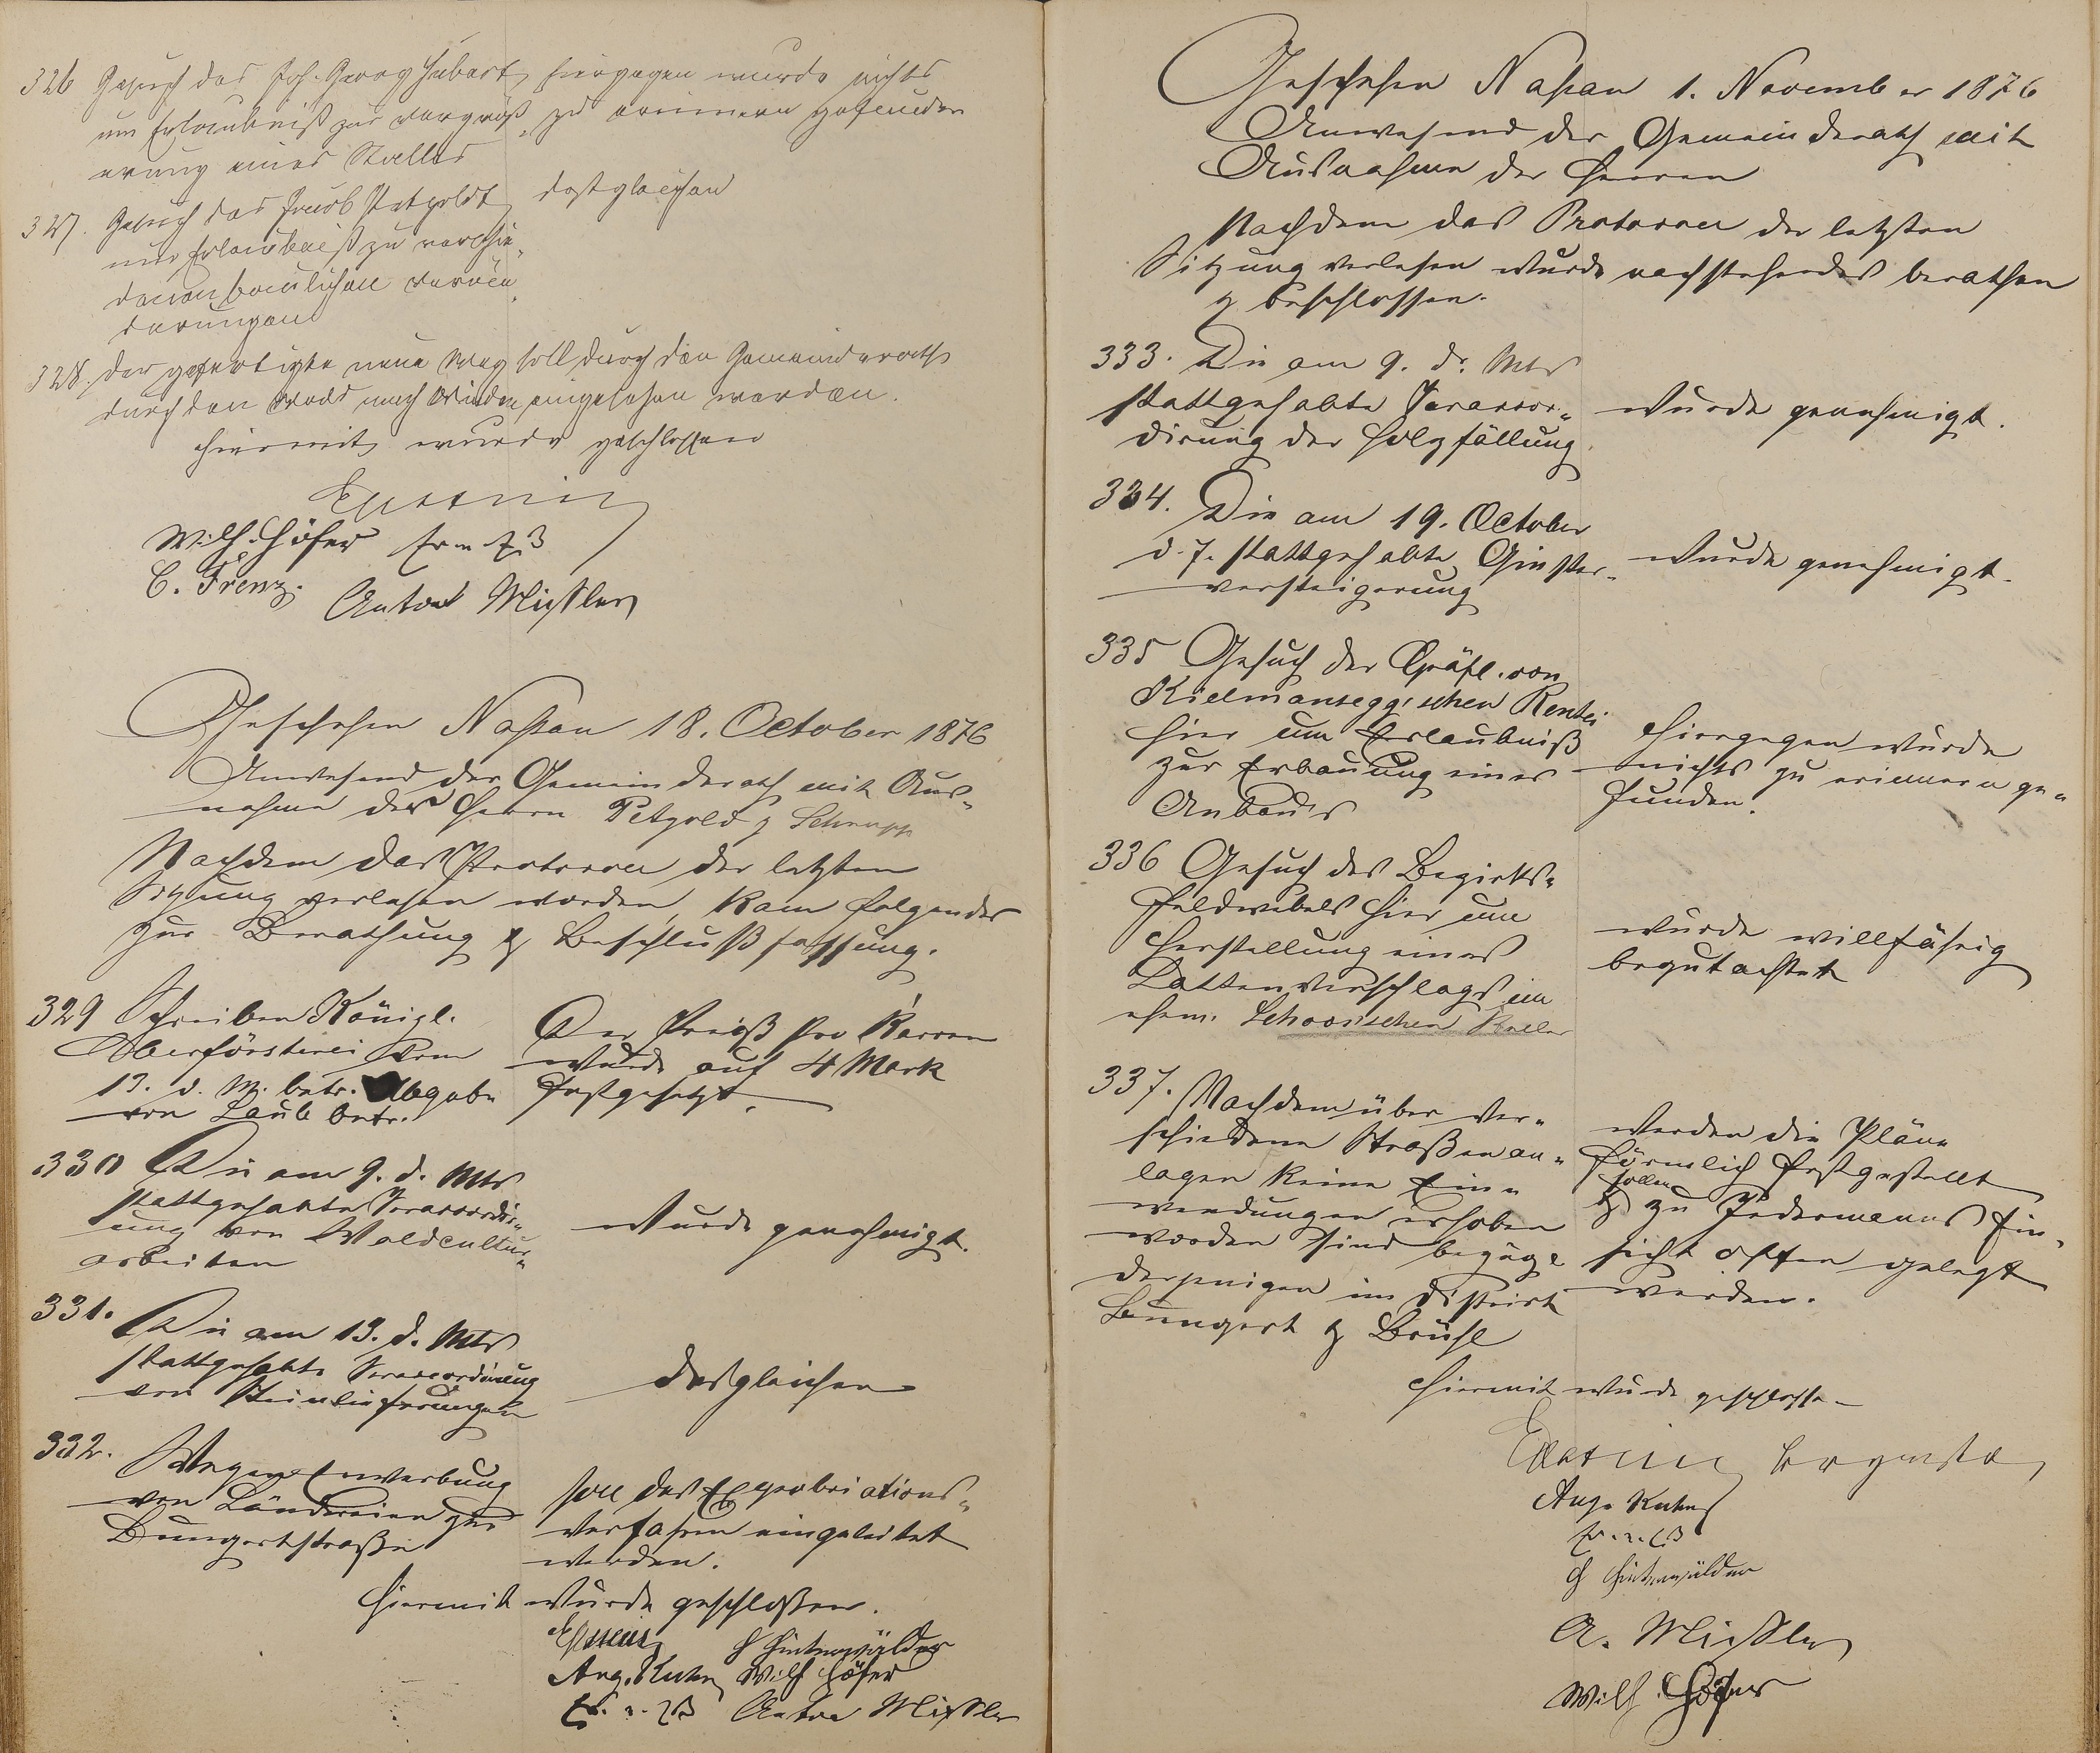 326 Gesuch des Joh. Georg Hubart
um Erlaubniß zur Vergröß„
erung eines Stalles
hiergegen wurde nichts
zu erinnern gefunden
327. Gesuch des Jacob Petgoldt
um Erlaubniß zu verschie„
denen baulichen Verän„
derungen
deßgleichen
328. Der gefertigte neue Weg soll durch den Gemeinderath
durch den Wald nach Winden eingesehen werden.
Hiermit wurde geschlossen
Wilh. Höfer
C. Frenz.
Anton Mißler
Geschehen Naßau 18. October 1876
Anwesend der Gemeinderath mit Aus„
nahme der Herrn Petgold & Schrupp
Nachdem das Protocoll der letzten
Sitzung verlesen worden, kam folgendes
zur Berathung & Beschlußfassung.
329 Schreiben Königl.
Oberförsterei vom
13. d. M. betr. Abgabe
von Laub betr.
Der Preiß pro Karren
wurde auf 4 Mark
festgesetzt.
330 Die am 9. d. Mts
stattgehabte Veraccordir„
ung von Waldcultur„
arbeiten
wurde genehmigt.
331. Die am 13. d. Mts
stattgehabte Veraccordirung
von Steinlieferungen
desgleichen
332. Wegen Erwerbung
von Ländereien zur
Bungertstraße
soll das Expropriations„
verfahren eingeleitet
werden.
Hiermit wurde geschloßen.
H Hinterwälder
Aug. Kuhn Wilh Höfer
Anton Mißler
Geschehen Naßau 1. November 1876
Anwesend der Gemeinderath mit
Ausnahme der Herren
Nachdem das Protocoll der letzten
Sitzung verlesen wurde nachstehendes berathen
& beschlossen.
333. Die am 9. d. Mts
stattgehabte Veraccor„
dirung der Holzfällung
wurde genehmigt.
334. Die am 19. October
d. J. stattgehabte Ginster„
versteigerung
wurde genehmigt.
335 Gesuch der Gräfl. von
Kielmansegg'schen Rentei
hier um Erlaubniß
zur Erbauung eines
Anbau's
Hiergegen wurde
nichts zu erinnern ge„
funden.
336 Gesuch des Bezirks„
Feldwebels hier um
Herstellung eines
Lattenverschlags im
ehem. Schoos'schen Keller
wurde willfährig
begutachtet
337. Nachdem über ver„
schiedene Straßenan„
lagen keine Ein„
wendungen erhoben
worden sind bezügl
derjenigen im District
Bungert & Brühl
werden die Pläne
förmlich festgestellt
sollen
& zu Jedermanns Ein„
sicht offen gelegt
werden.
Hiermit wurde geschlossen
Aug. Kuhn
H Hinterwälder
A. Mißler
Wilh. Höfer